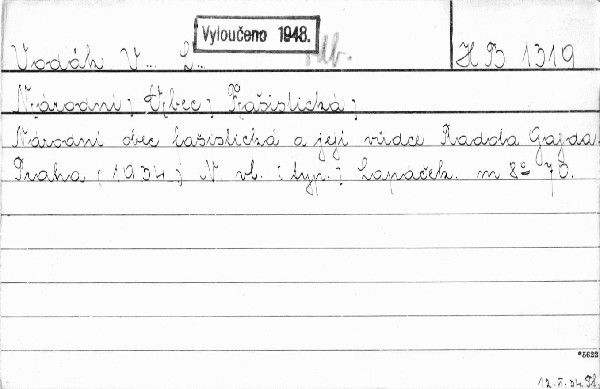 Vyloučeno 1948.
Vodák V... L... HB 1319
Národní, Obec, Fašistická,
Národní obec fašistická a její vůdce Radola Gajda.
Praha (1934.) N. vl. [typ.: Lapáček. m 8° 70.
*5623
12.X.34.